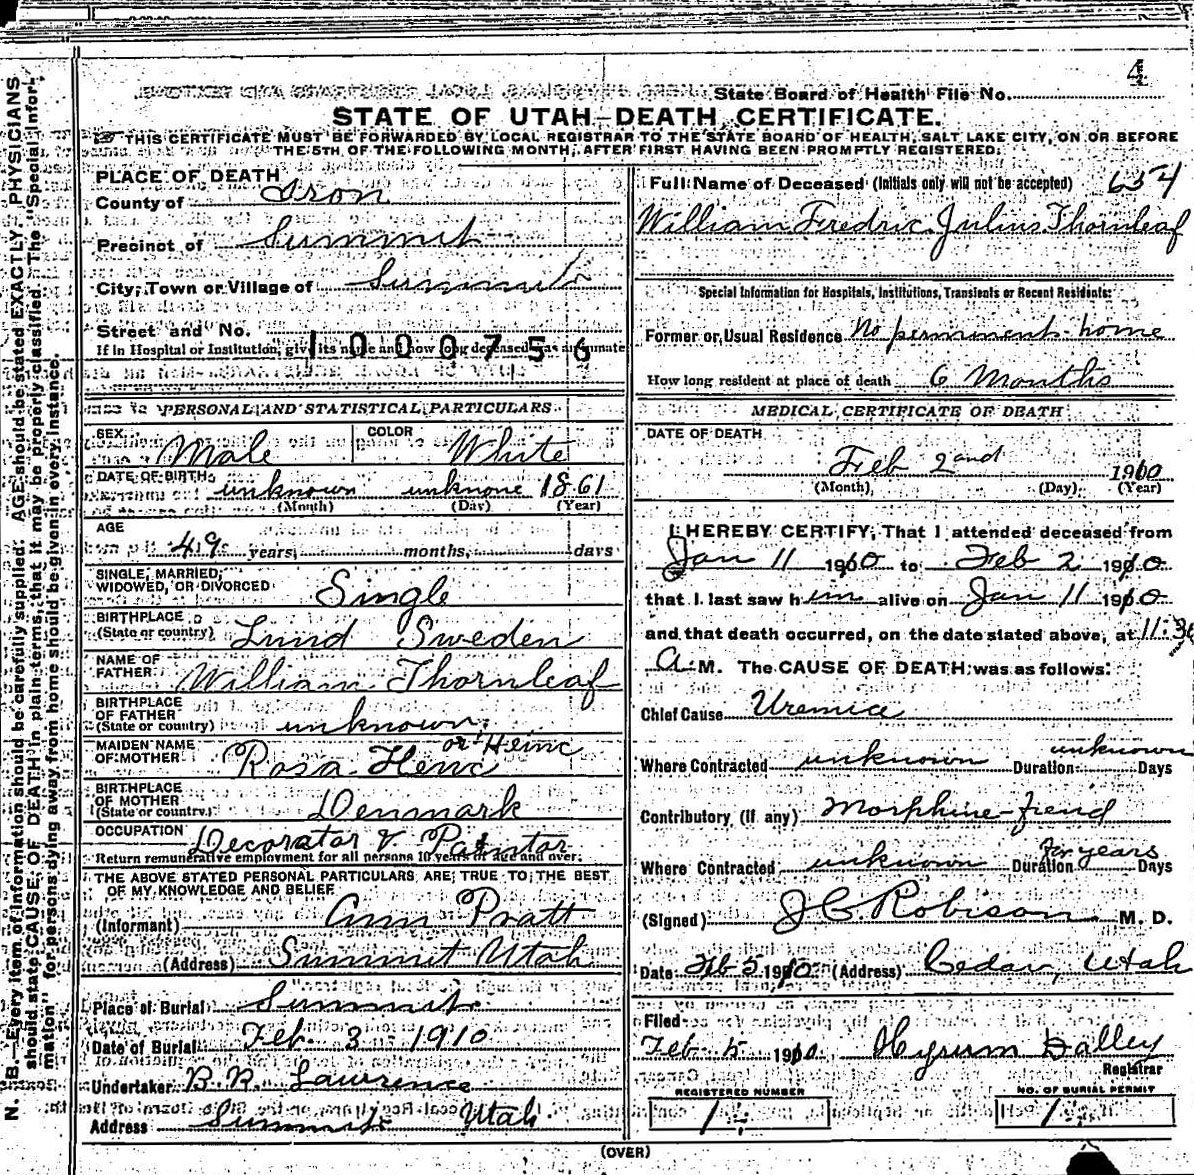 4
State Board of Health File No.
STATE OF UTAH—DEATH CERTIFICATE.
THIS CERTIFICATE MUST BE FORWARDED BY LOCAL REGISTRAR TO THE STATE BOARD OF HEALTH, SALT LAKE CITY, ON OR BEFORE
THE 5TH OF THE FOLLOWING MONTH, AFTER FIRST HAVING BEEN PROMPTLY REGISTERED.
N. B.—Every item of information should be carefully supplied. AGE should be stated EXACTLY. PHYSICIANS
should state CAUSE OF DEATH in plain terms, that it may be properly classified. The "Special Infor-
mation" for persons dying away from home should be given in every instance.
PLACE OF DEATH
County of Iron
Precinct of Summit
City, Town or Village of Summit
Street and No.
1000756
If in Hospital or Institution, give its name and how long deceased was an inmate
PERSONAL AND STATISTICAL PARTICULARS
SEX Male COLOR White
DATE OF BIRTH unknown unknone 1861
(Month) (Day) (Year)
AGE
49 years, months, days
SINGLE, MARRIED,
WIDOWED, OR DIVORCED Single
BIRTHPLACE
(State or country) Lund Sweden
NAME OF
FATHER William Thornleaf
BIRTHPLACE
OF FATHER
(State or country) unknown
MAIDEN NAME
OF MOTHER Rosa Henc or Heinc
BIRTHPLACE
OF MOTHER
(State or country) Denmark
OCCUPATION Decorator & Paintor
Return remunerative employment for all persons 10 years of age and over.
THE ABOVE STATED PERSONAL PARTICULARS ARE TRUE TO THE BEST
OF MY KNOWLEDGE AND BELIEF
(Informant) Ann Pratt
(Address) Summit Utah
Place of Burial Summit
Date of Burial Feb. 3 1910
Undertaker B. R. Lawrence
Address Summit Utah
Full Name of Deceased (Initials only will not be accepted) 654
William Fredric Julius Thornleaf
Special Information for Hospitals, Institutions, Transients or Recent Residents:
Former or Usual Residence No permment home
How long resident at place of death 6 Months
MEDICAL CERTIFICATE OF DEATH
DATE OF DEATH
Feb 2and 1910
(Month) (Day) (Year)
I HEREBY CERTIFY, That I attended deceased from
Jan 11 1910 to Feb 2 1910
that I last saw him alive on Jan 11 1910
and that death occurred, on the date stated above, at 11:30
A. M. The CAUSE OF DEATH was as follows:
Chief Cause Uremice
Where Contracted unknown Duration unknown Days
Contributory (if any) Morphine-fiend
Where Contracted unknown Duration for years Days
(Signed) J C Robison M. D.
Date Feb 5 1910 (Address) Cedar, Utah
Filed
Feb 5 1910 Hyrum Dalley
Registrar
REGISTERED NUMBER NO. OF BURIAL PERMIT
1 1
(OVER)